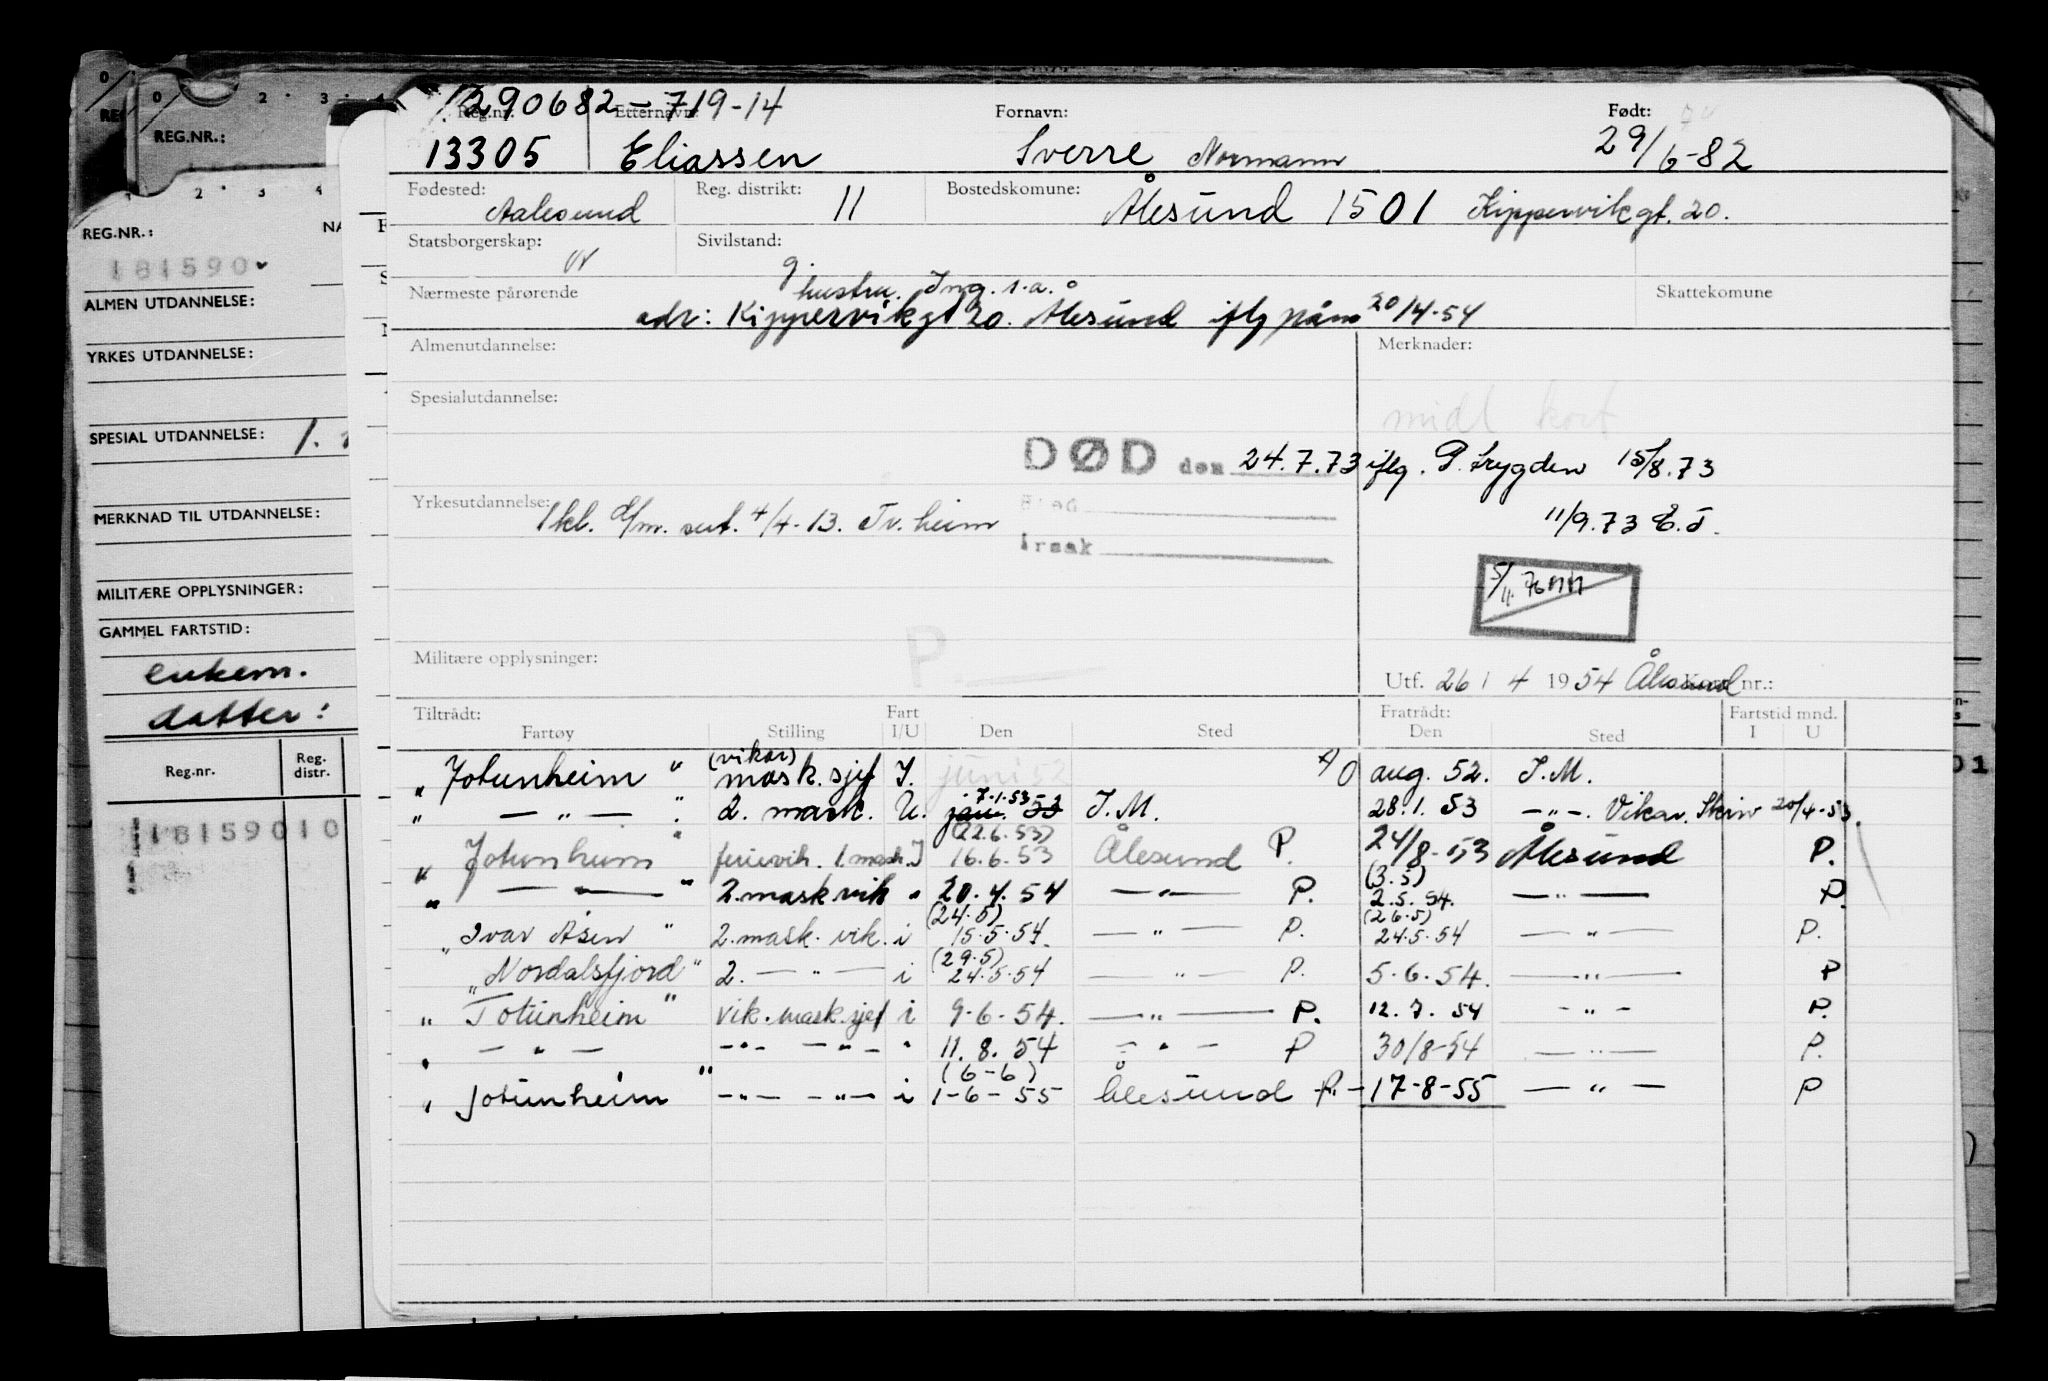 290682-719-14
Reg.nr. Etternavn: Fornavn: Født:
13305 Eliassen Sverre Normann 29/6-82
Fødested: Aalesund Reg. distrikt: 11 Bostedskomune: Ålesund 1501 Kippervikgt. 20.
Statsborgerskap: N Sivilstand: g.
Nærmeste pårørende hustru. Ing. s.a. Skattekomune
adr: Kippervikgt 20. Ålesund iflg påm 20/4-54
Almenutdannelse: Merknader:
Spesialutdannelse: midl kort
DØD den 24.7.73 iflg. P. trygden 15/8.73
Yrkesutdannelse: 1 kl. d/m. sert. 4/4-13. Tr.heim
11/9.73 E.T.
Årsak
5/11.76
P.
Militære opplysninger: Utf. 26/4 1954 Ålesund Kort nr.:
Tiltrådt: Fart Fratrådt: Fartstid mnd.
Fartøy Stilling I/U Den Sted Den Sted I U
" Jotunheim " (vikar) mask.sjef I. juni 52 A/O aug. 52. I.M.
" — " — " 2. mask. U. jan. 53 7.1.53 I.M. 28.1.53 — " —. Vikar. Skriv 20/4-53.
(22.6.53)
" Jotunheim " ferievik. 1. mask. I 16.6.53 Ålesund P. 24/8-53 Ålesund P.
(3.5)
" — " — " 2. mask vik " 20.4.54 — " — P. 2.5.54. — " — P.
(24.5) (26.5)
" Ivar Åsen " 2. mask. vik. i 15.5.54. — " — P. 24.5.54 — " — P.
(29.5)
" Nordalsfjord " 2. — " — i 24.5.54 — " — P. 5.6.54. — " — P
" Jotunheim " vik. mask.sjef i 9.6.54. — " — P. 12.7.54 — " — P.
" — " — — " — — " — " 11.8.54 — " — P 30/8-54 — " — P.
(6-6)
" Jotunheim " — " — — " — i 1-6-55 Ålesund P. — 17-8-55 — " — P
REG.NR.:
REG.NR.: NA
181590
ALMEN UTDANNELSE:
YRKES UTDANNELSE:
SPESIAL UTDANNELSE: 1.
MERKNAD TIL UTDANNELSE:
MILITÆRE OPPLYSNINGER:
GAMMEL FARTSTID:
enkem.
datter:
Reg.nr. Reg. distr.
18159010